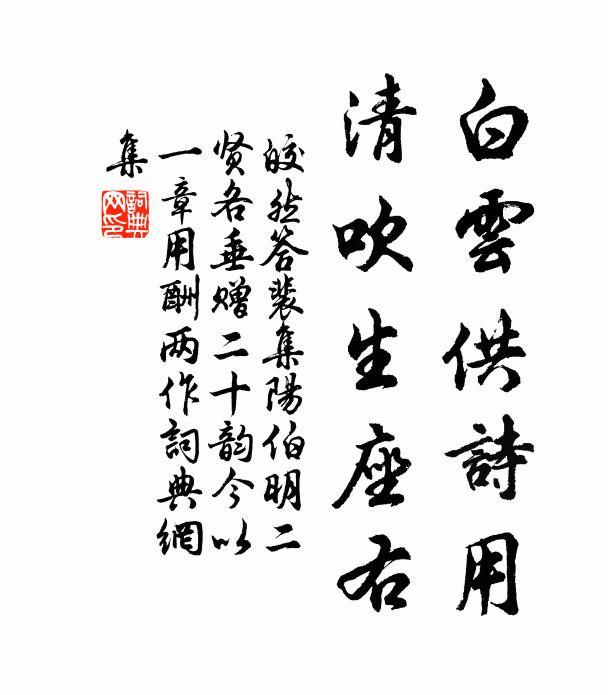 白雲供詩用
清吹生座右
皎然答裴集陽伯明二
贤各垂赠二十韵今以
一章用酬两作詞典網
集
詞典
网印